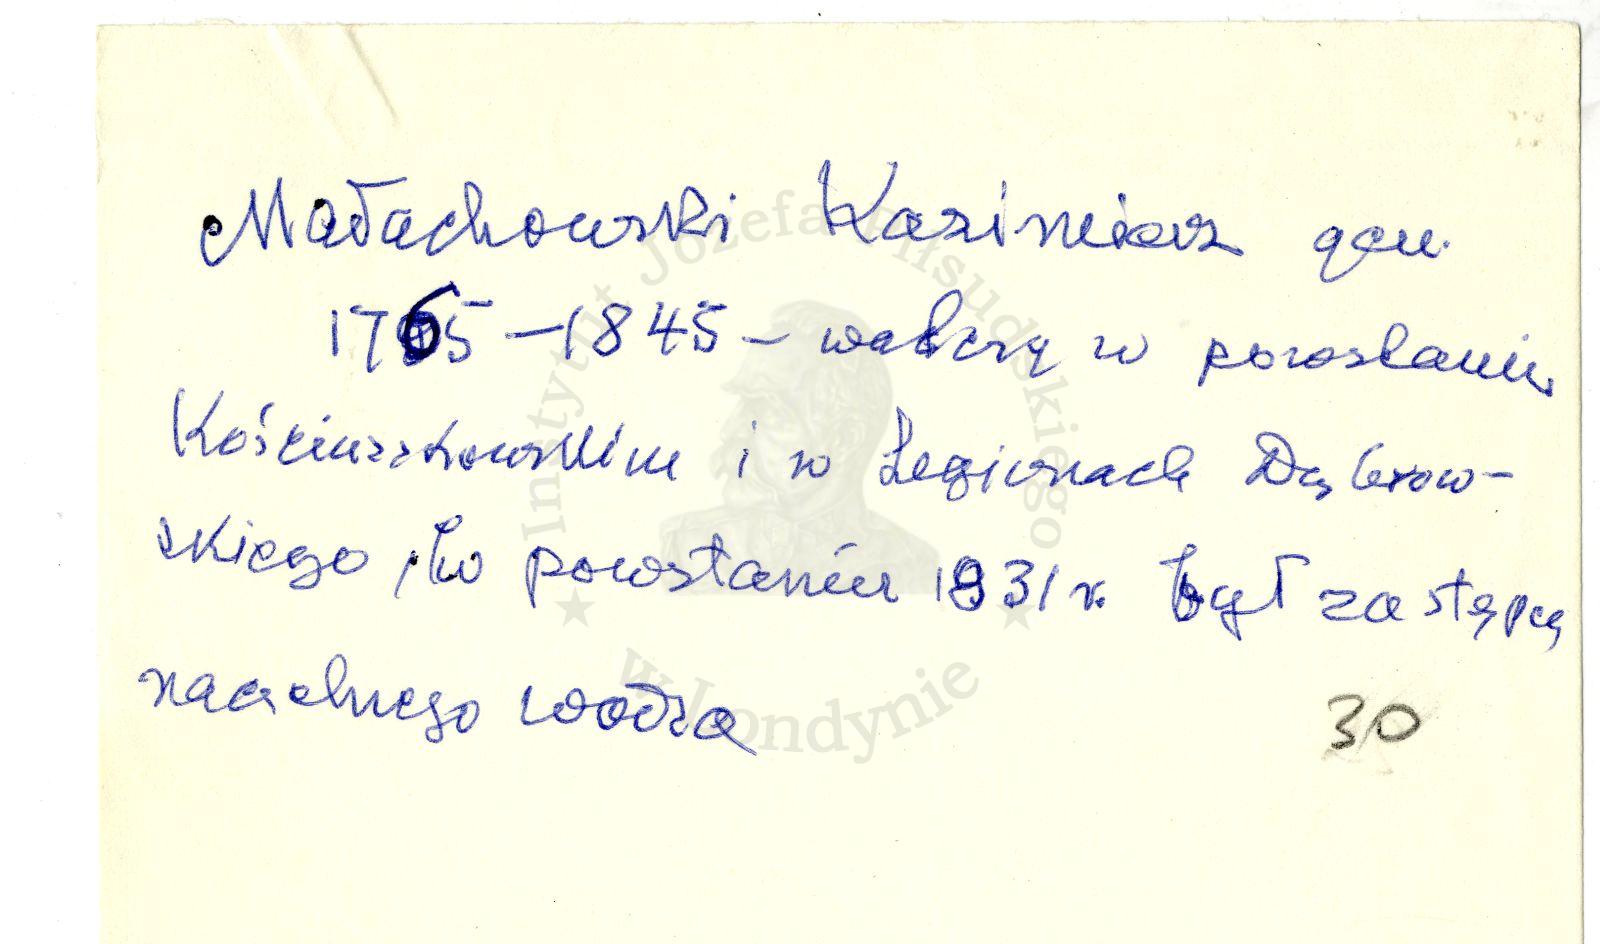 Małachowski Kazimierz gen.
1765 – 1845 – walczy w powstaniu
Kościuszkowskim i w Legionach Dąbrow-
skiego, w powstaniu 1831 r. był zastępcą
naczelnego wodza
30
Instytut Józefa Piłsudskiego
w Londynie